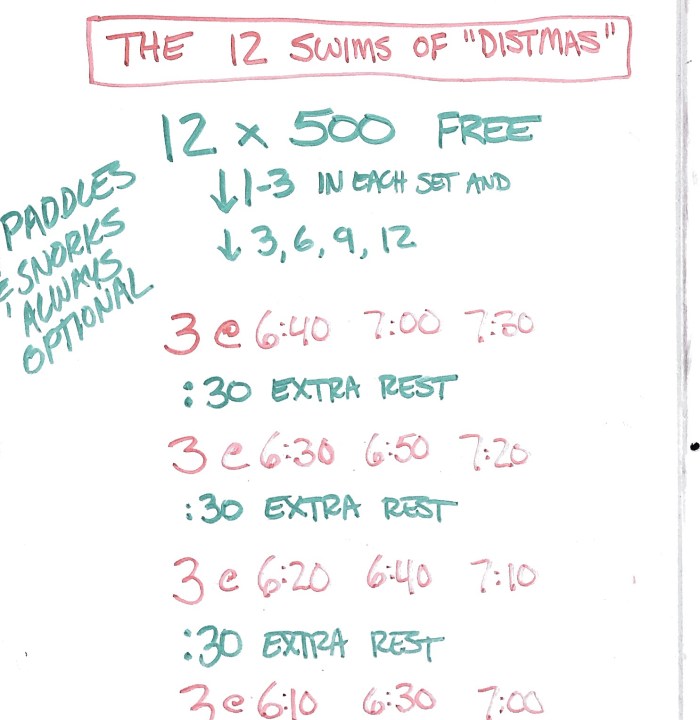 THE 12 SWIMS OF "DISTMAS"
12 x 500 FREE
↓1-3 IN EACH SET AND
↓ 3, 6, 9, 12
PADDLES
& SNORKS
ALWAYS
OPTIONAL
3 @ 6:40 7:00 7:30
:30 EXTRA REST
3 @ 6:30 6:50 7:20
:30 EXTRA REST
3 @ 6:20 6:40 7:10
:30 EXTRA REST
3 @ 6:10 6:30 7:00